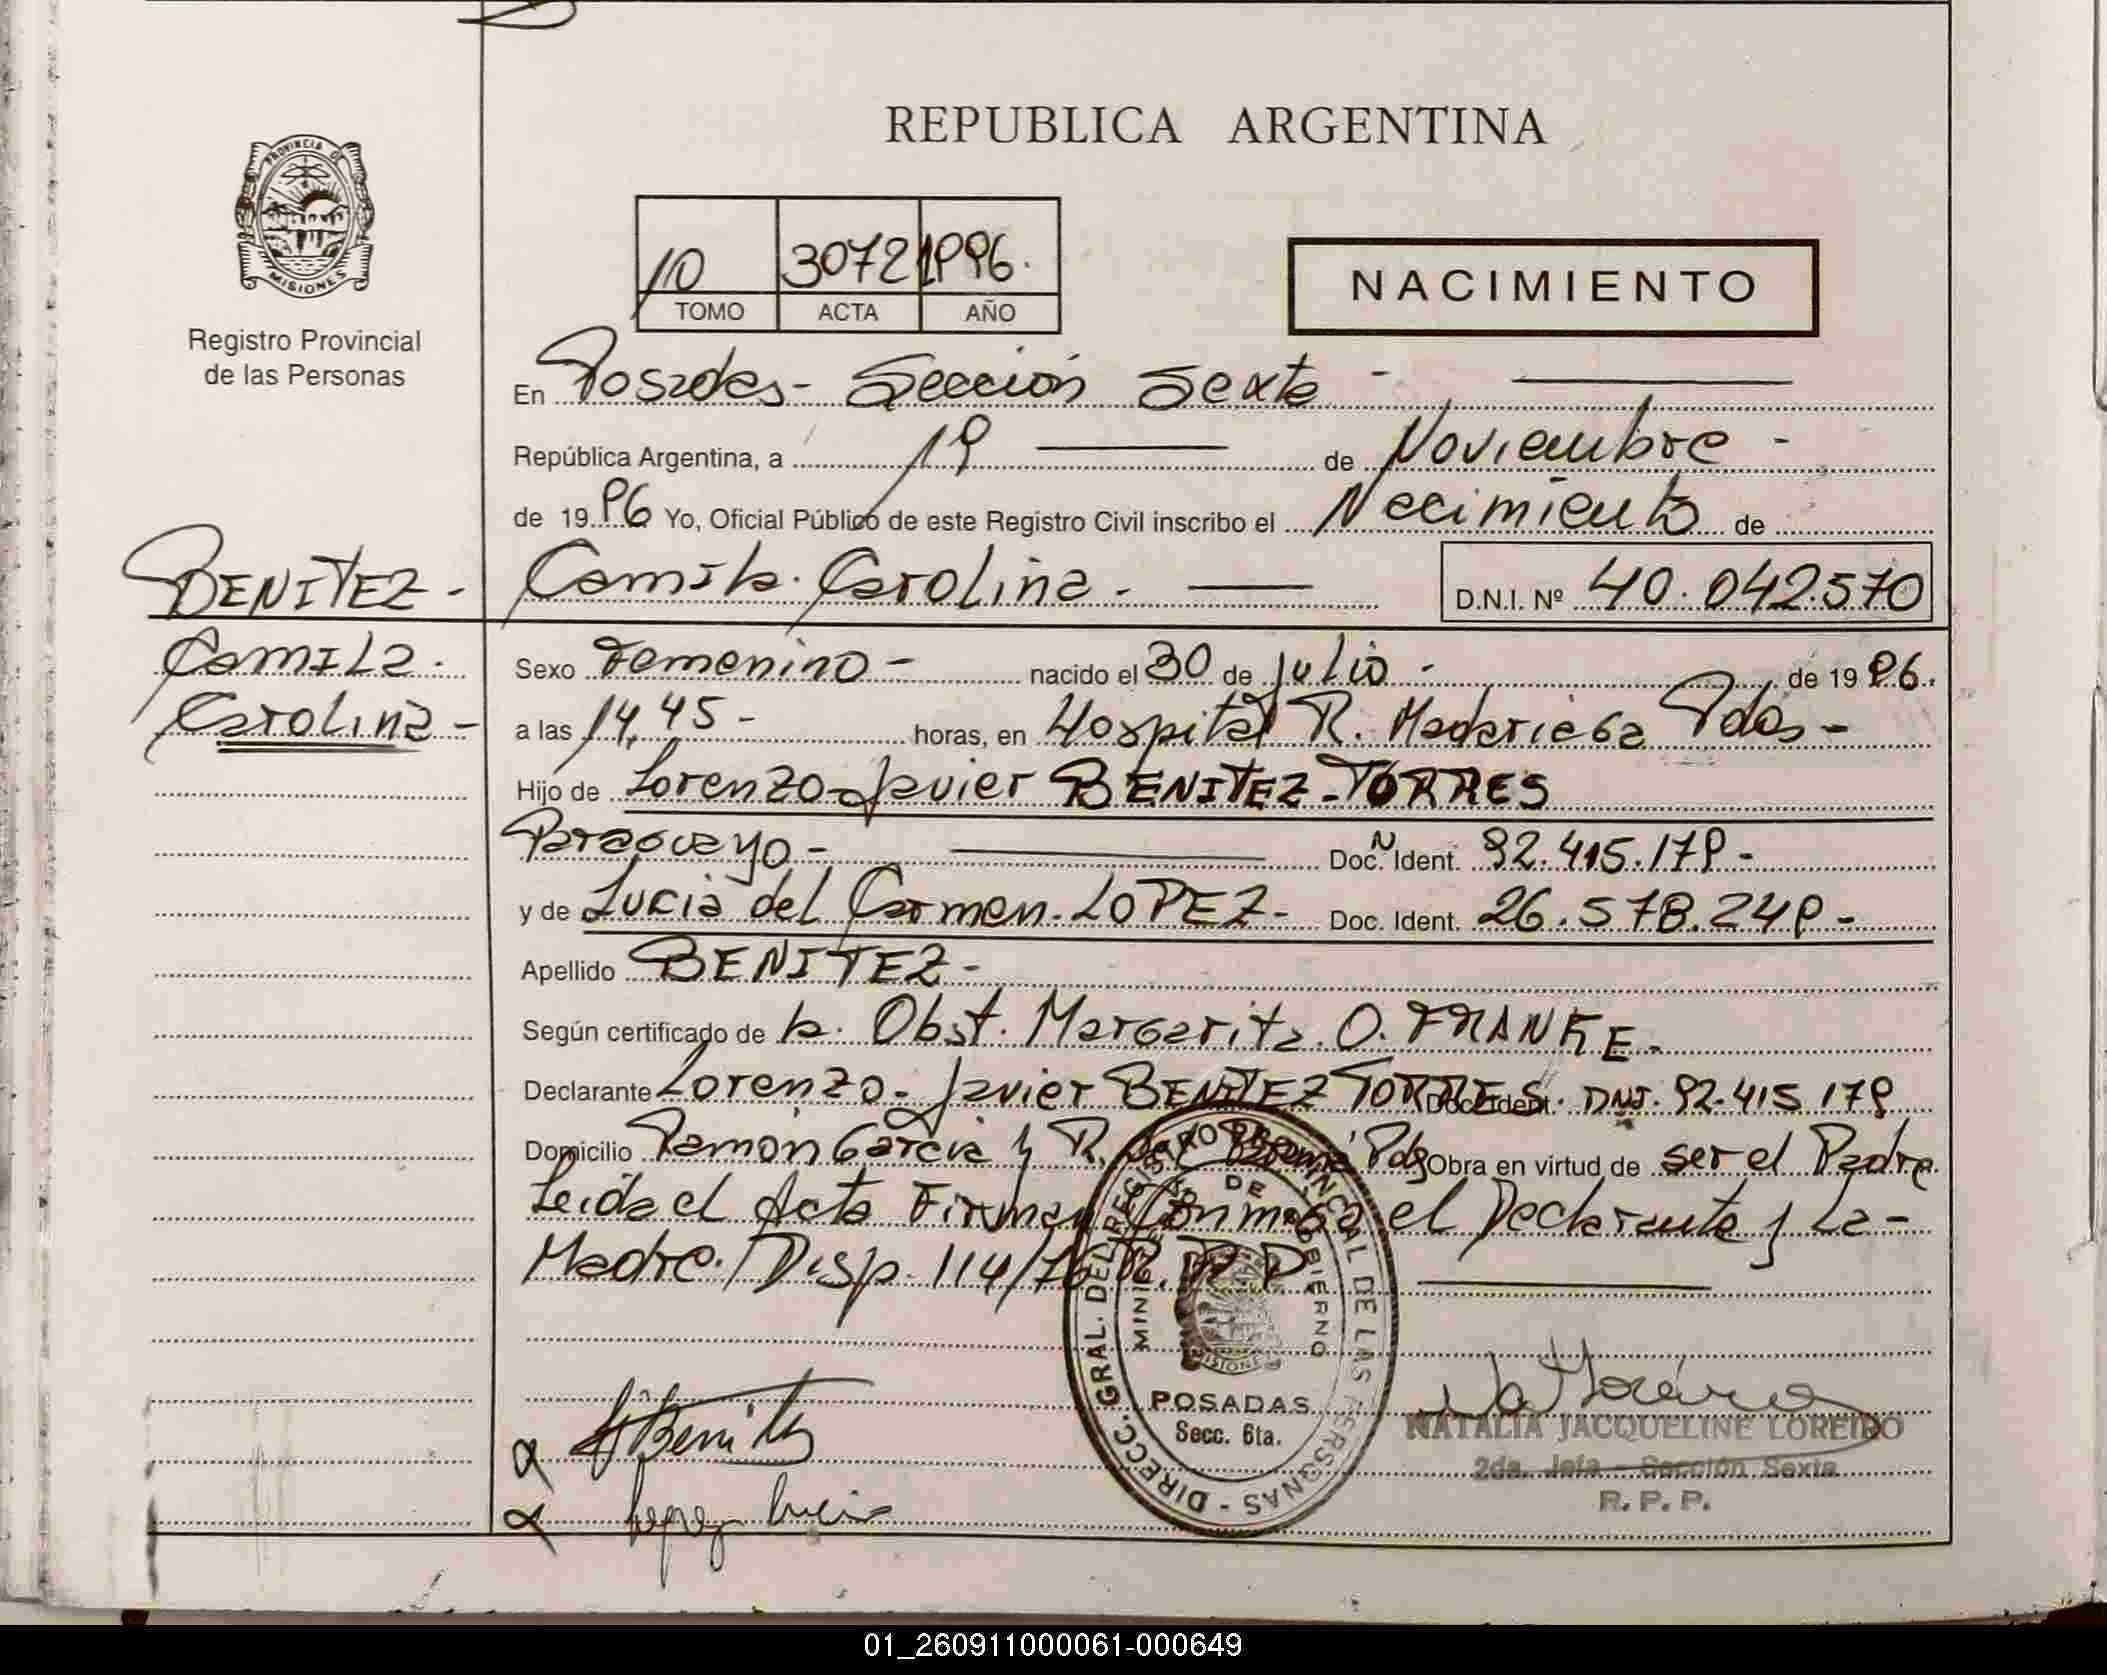 REPUBLICA ARGENTINA
PROVINCIA DE
MISIONES
Registro Provincial
de las Personas
10 3072 1996.
TOMO ACTA AÑO
NACIMIENTO
En Posadas - Sección Sexta -
República Argentina, a 19 de Noviembre -
de 1996 Yo, Oficial Público de este Registro Civil inscribo el Nacimiento de
BENITEZ -
Camila
Carolina -
Camila Carolina - D.N.I. Nº 40.042.570
Sexo Femenino - nacido el 30 de Julio - de 1996.
a las 14,45 - horas, en Hospital R. Madariaga Pdas -
Hijo de Lorenzo Javier BENITEZ - TORRES
Paraguayo - Doc. Ident. 92.415.179 -
y de Lucia del Carmen LOPEZ - Doc. Ident. 26.578.249 -
Apellido BENITEZ -
Según certificado de la Obst. Margarita O. FRANKE -
Declarante Lorenzo Javier BENITEZ TORRES. Doc. Ident. DNI. 92.415.179
Domicilio Ramón Garcia y R. Pds Obra en virtud de ser el Padre
Leida el Acta Firman Conmigo el Declarante y La -
Madre. Disp. 114/76 R.P.P.
DIRECC. GRAL. DEL REGISTRO PROVINCIAL DE LAS PERSONAS -
MINISTERIO DE GOBIERNO
MISIONES
POSADAS
Secc. 6ta.
Benitez
Lopez Lucia
NATALIA JACQUELINE LOREIRO
2da. Jefa - Sección Sexta
R. P. P.
01_260911000061-000649